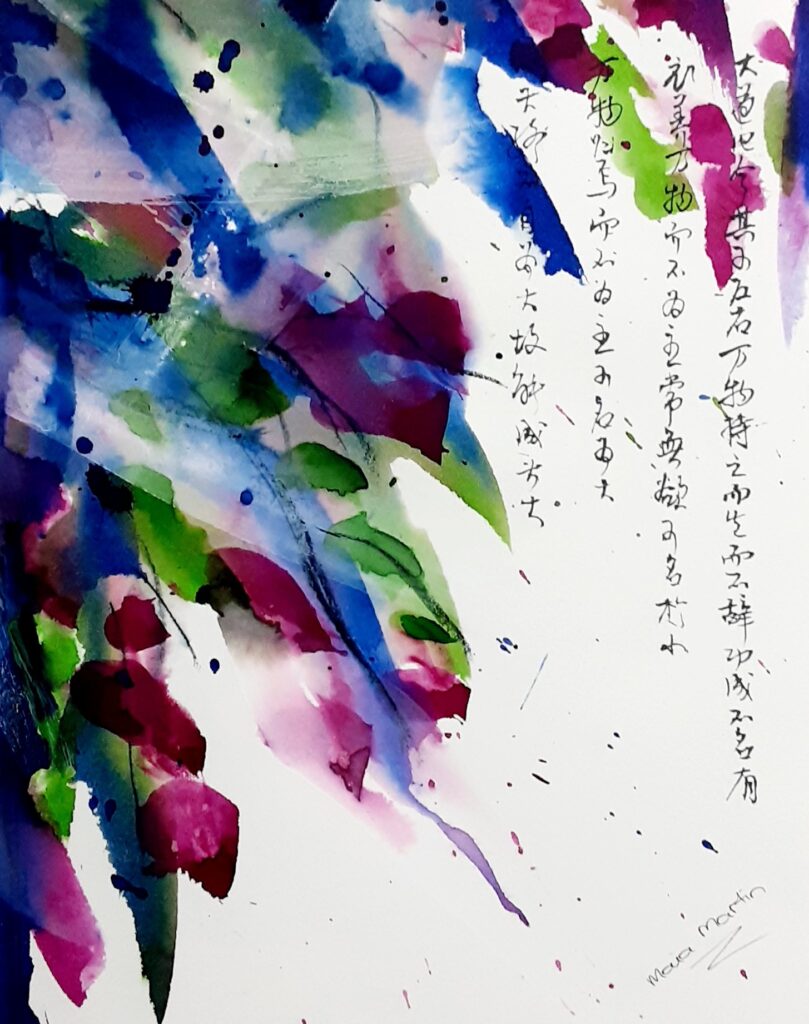 大道氾兮其可左右万物恃之而生而不辭功成不名有
衣养万物而不为主常無欲可名於小
万物归焉而不为主可名为大
自为大故能成其大
Maia Martin